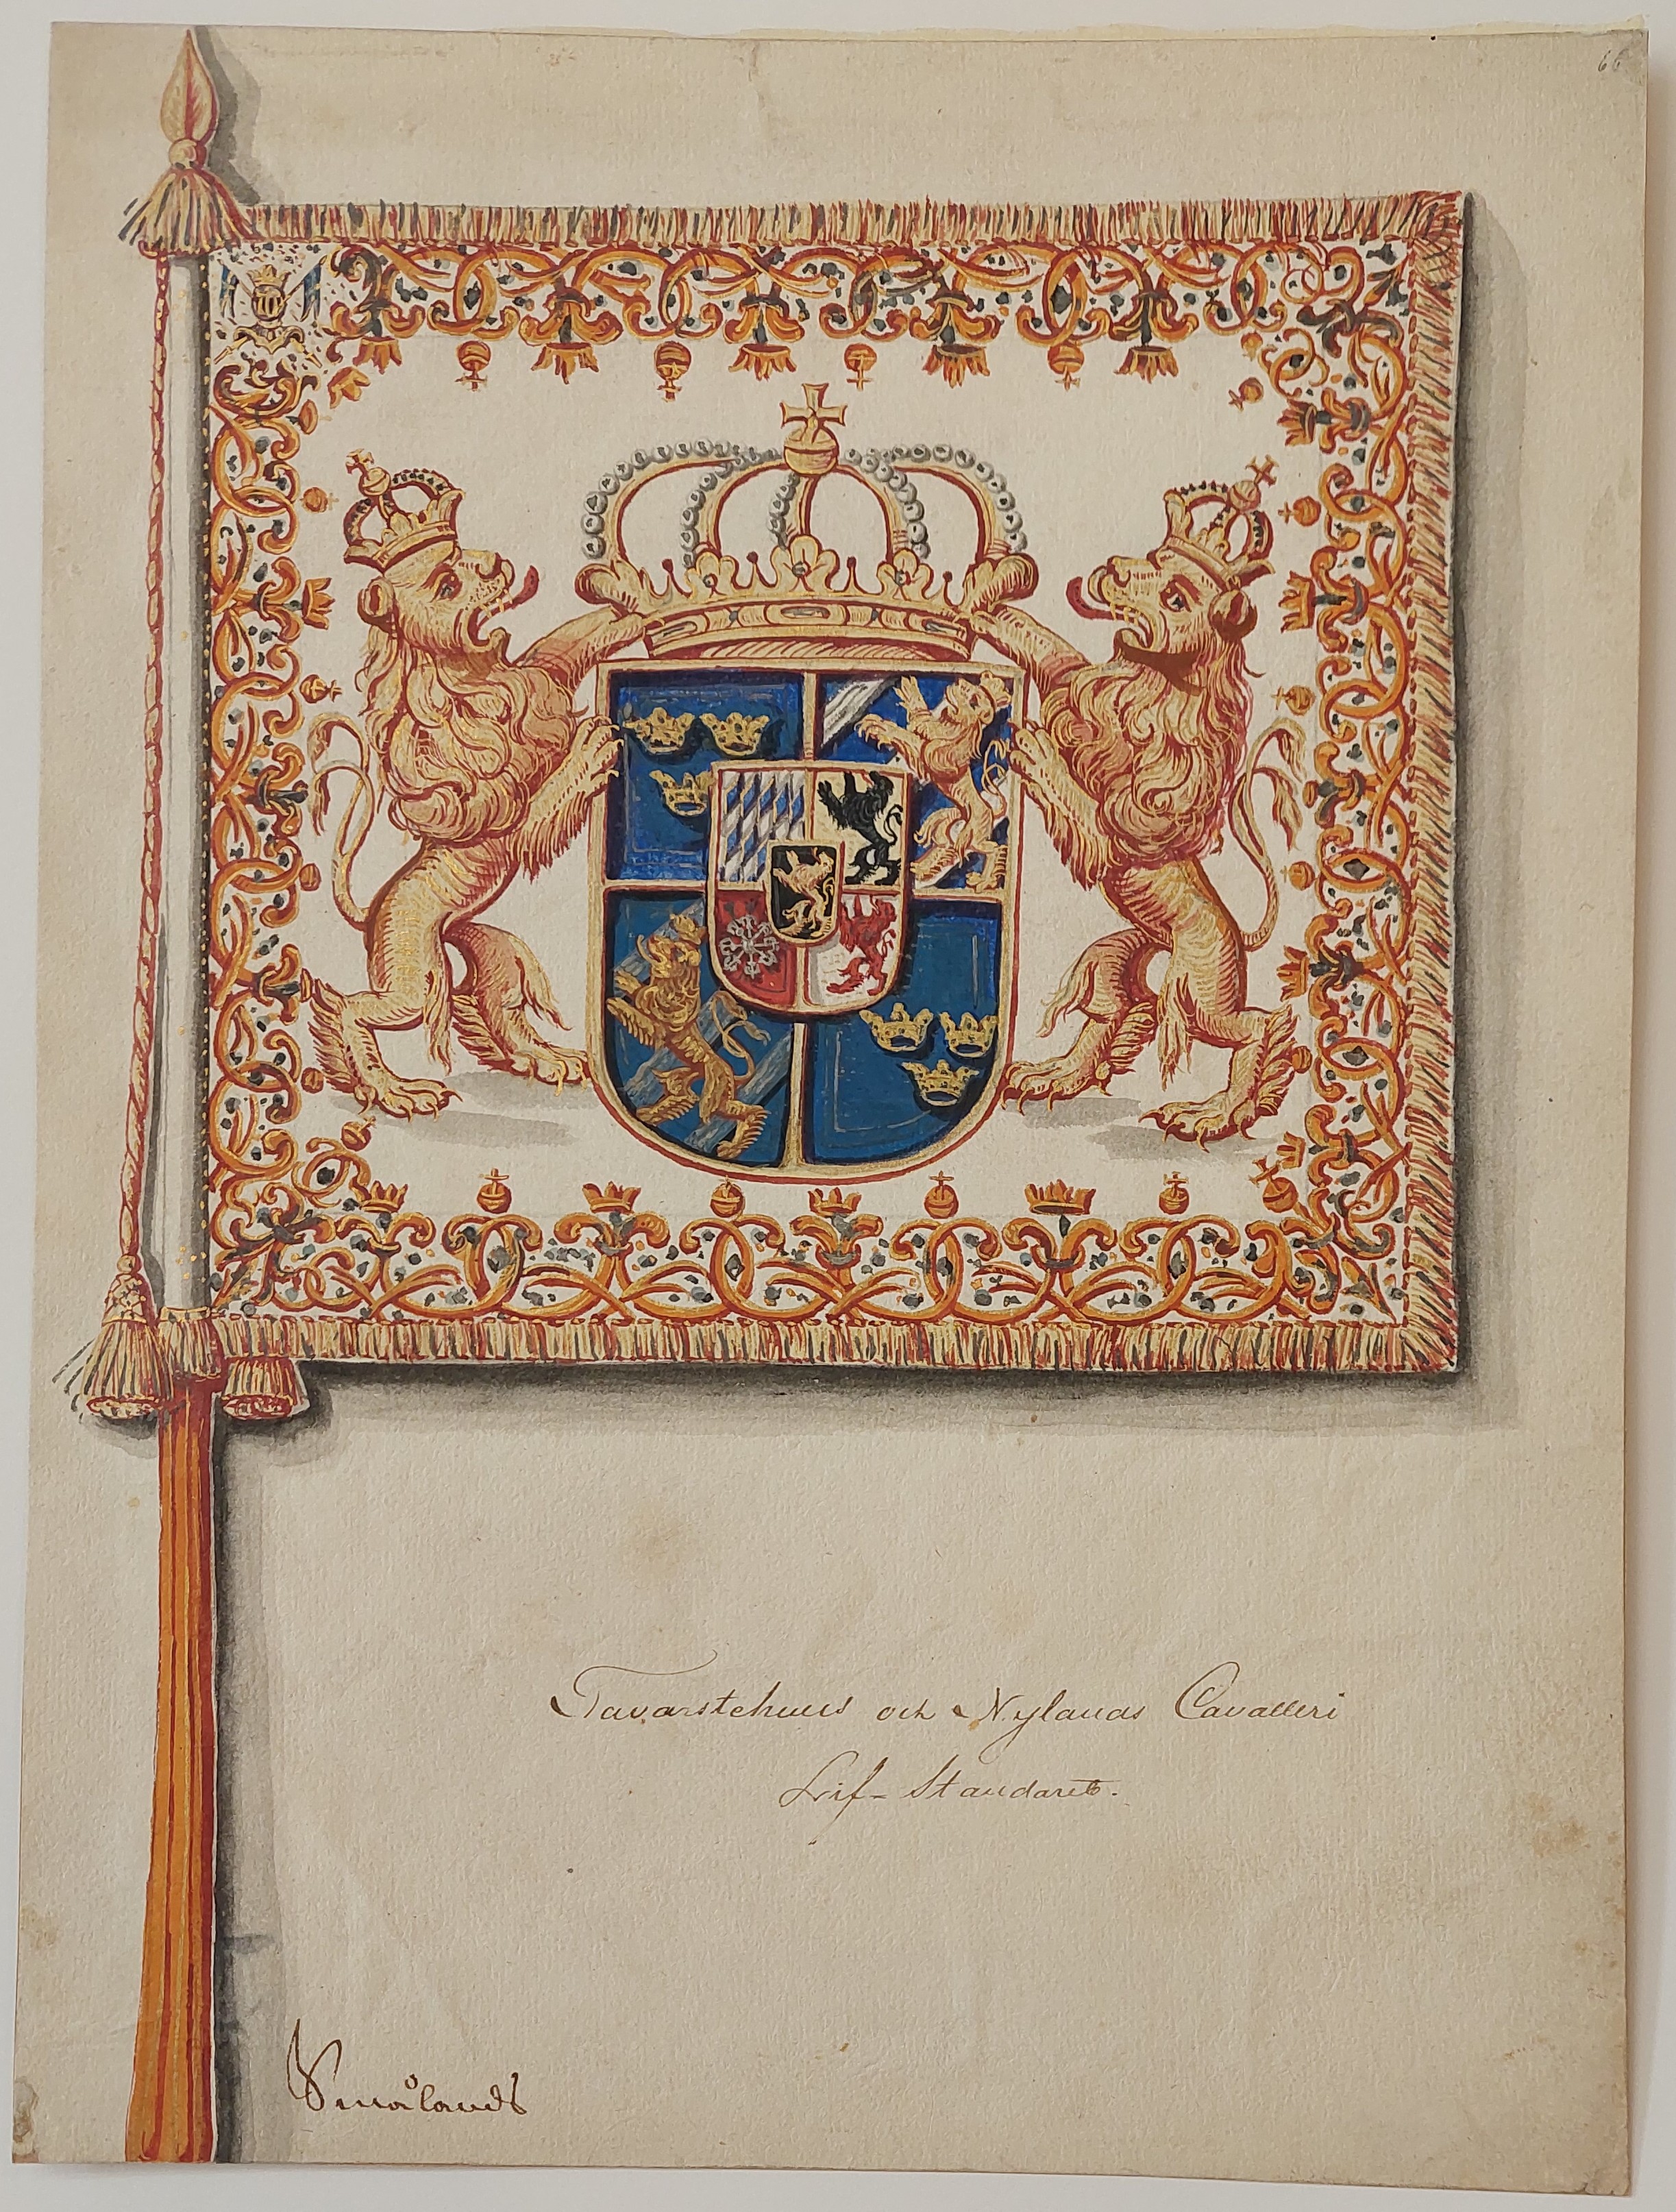 66
Tavarstehuus och Nylands Cavalleri
Lif-Standaret.
Smålands